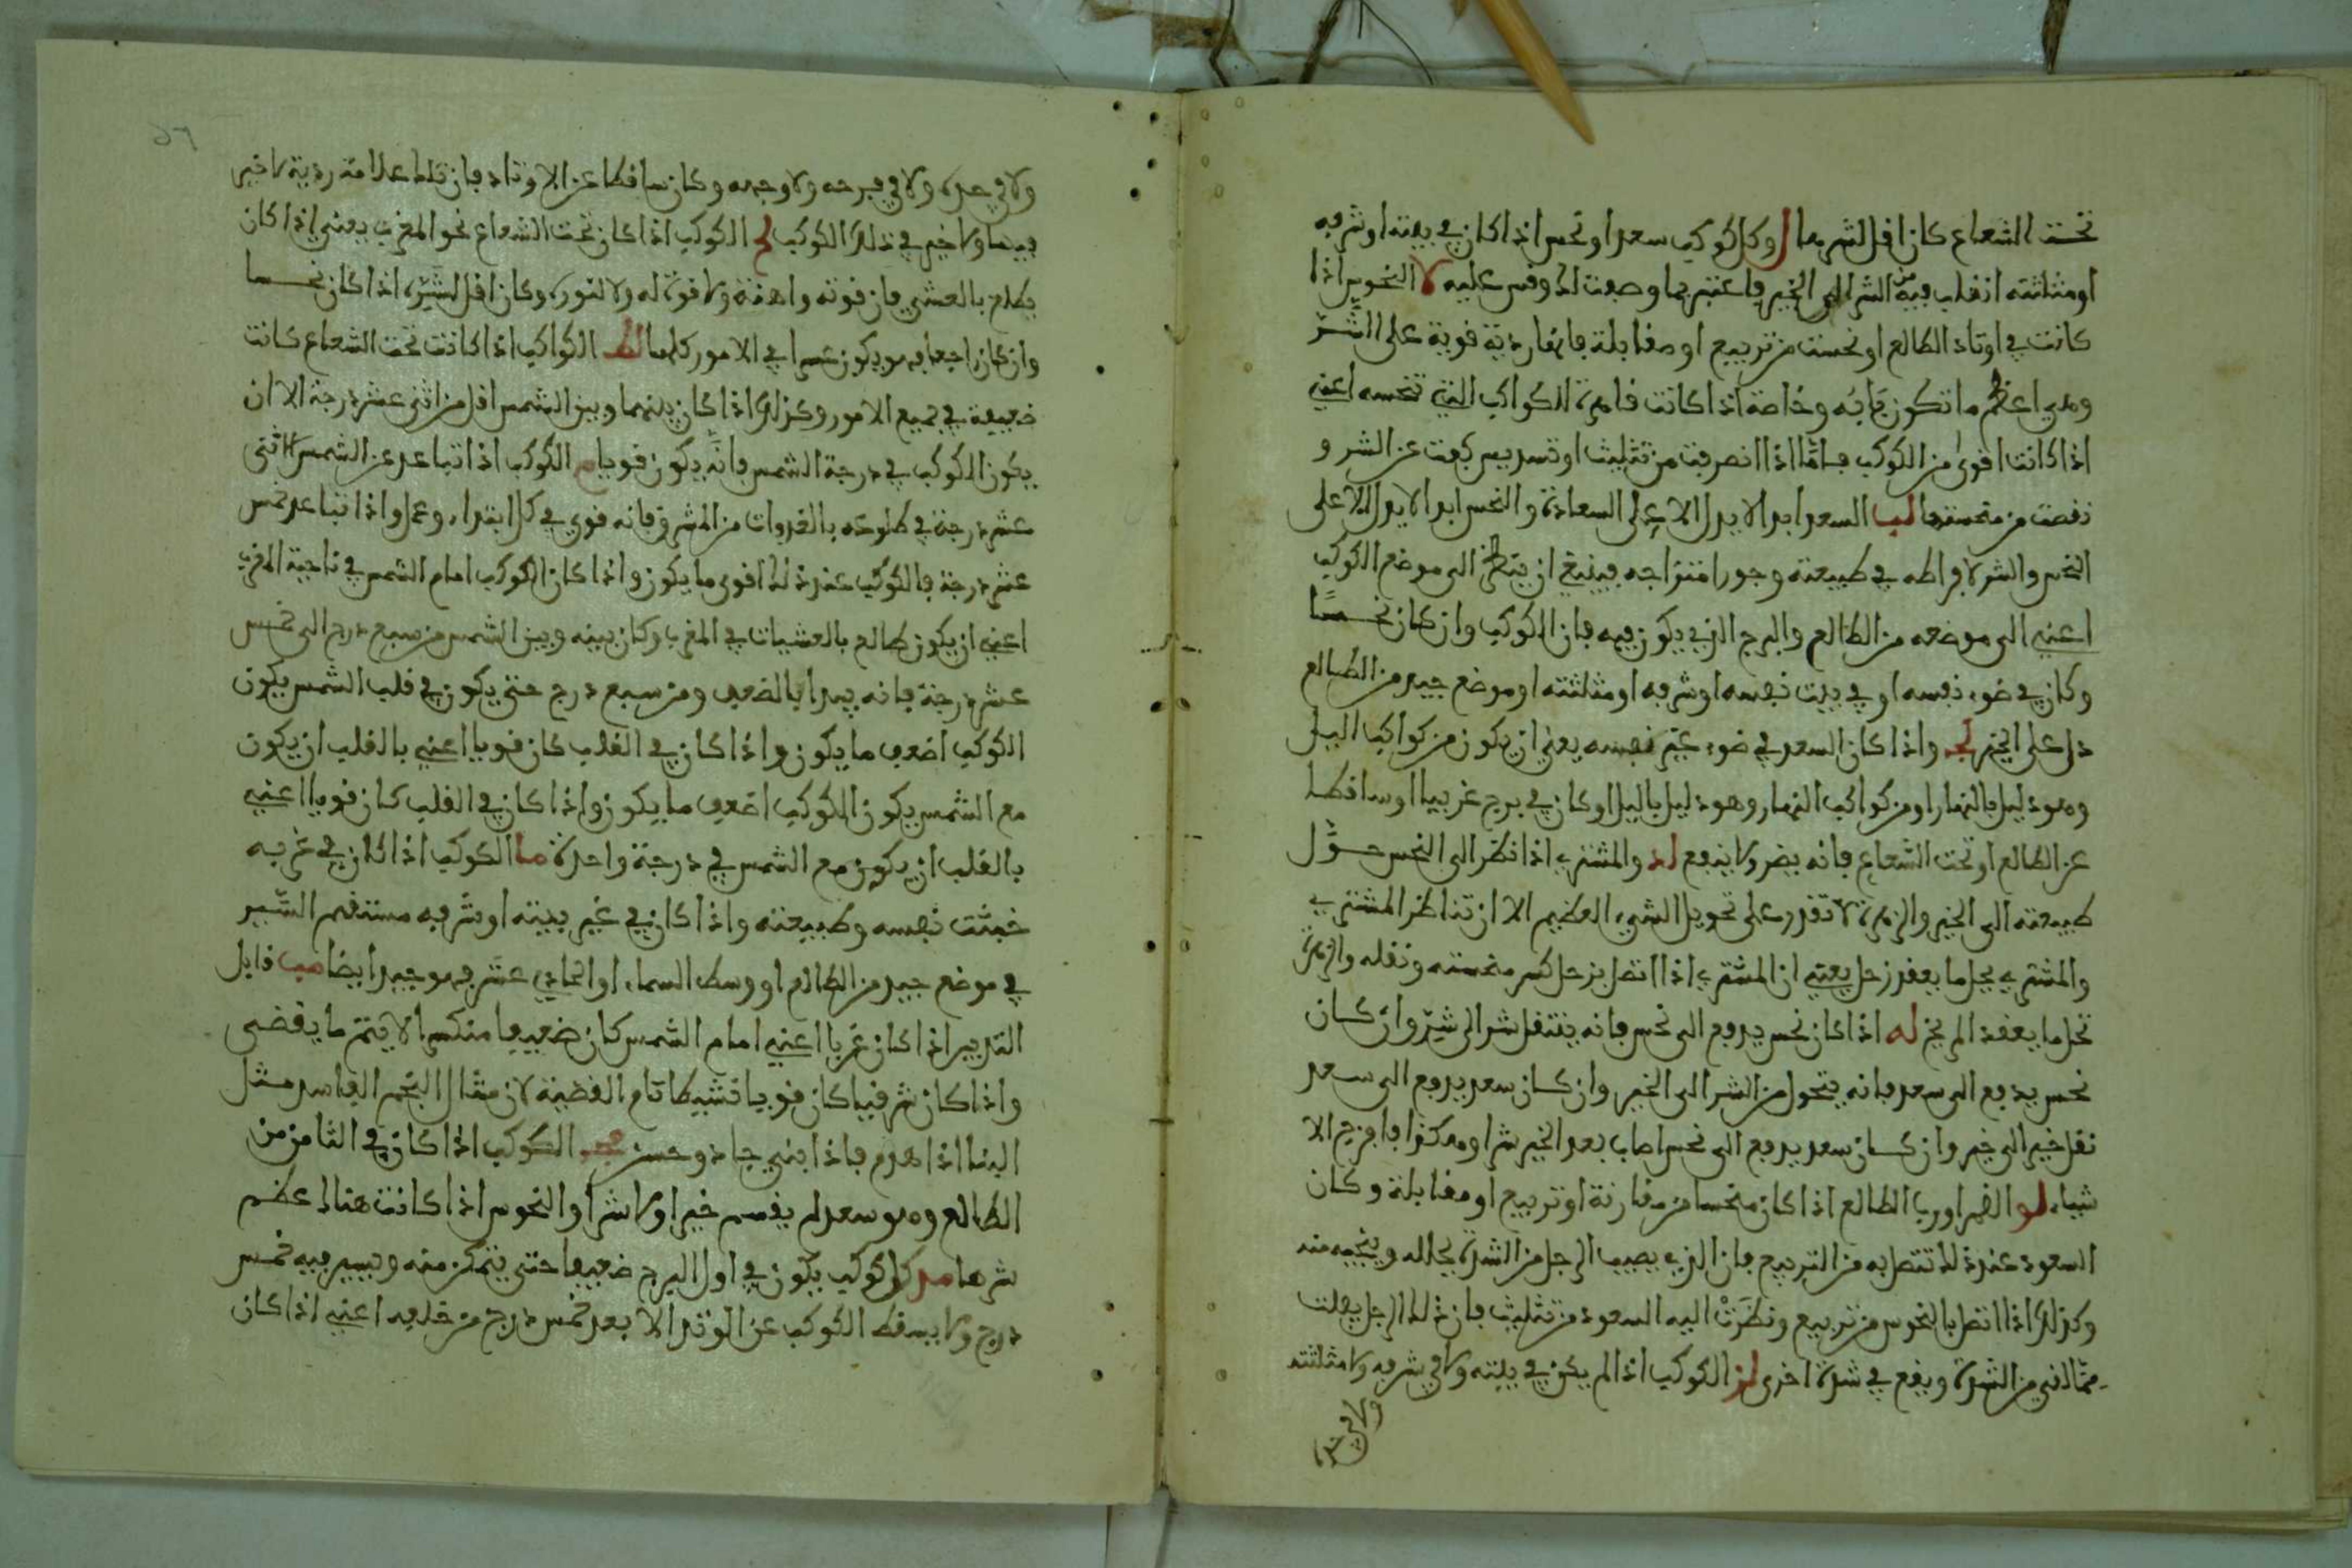 تحت الشعاع كان اقل لشرهما ل وكل كوكب سعد او نحس اذا كان في بيته او شرفه
او مثلثته انقلب فيه من الشر الى الخير فاعتبر بما وصفت لك وقس عليه لا النحوس اذا
كانت في اوتاد الطالع او نحست من تربيع او مقابلة فانها ردية قوية على الشر
وهي اعظم ما تكون وخاصة اذا كانت قاهرة للكواكب التي تنحسه اعني
اذا كانت اقوى من الكوكب فاما اذا انصرفت من تثليث او تسديس كفت عن الشر و
نقصت من منحستها لب السعد ابدا لا يدل الا على السعادة والنحس ابدا لا يدل الا على
النحس والشر لافراطه في طبيعته وجور امتزاجه فينبغي ان ينظر الى موضع الكوكب
اعني الى موضعه من الطالع والبرج الذي يكون فيه فان الكوكب وان كان نحسا
وكان في ضوء نفسه او في بيت نفسه او شرفه او مثلثته او موضع جيد من الطالع
دل على الخير لج واذا كان السعد في ضوء غير نفسه يعني ان يكون من كواكب الليل
وهو دليل بالنهار او من كواكب النهار وهو دليل بالليل او كان في برج غريبا او ساقطا
عن الطالع او تحت الشعاع فانه يضر ولا ينفع لد والمشتري اذا نظر الى النحس حول
طبيعته الى الخير والزهرة لا تقدر على تحويل الشيء العظيم الا ان تناظر المشتري
والمشتري يحل ما يعقد زحل يعني ان المشتري اذا اتصل بزحل كسر منحسته ونقله والزهرة
تحل ما يعقد المريخ له اذا كان نحس يدفع الى نحس فانه ينتقل شر الى شر وان كان
نحس يدفع الى سعد فانه يتحول من الشر الى الخير وان كان سعد يدفع الى سعد
نقل خير الى خير وان كان سعد يدفع الى نحس اصاب بعد الخير شرا وهكذا فامزج الا
شياء لو القمر او رب الطالع اذا كان منحسا من مقارنة او تربيع او مقابلة وكان
السعود عند ذلك تتصل به من التربيع فان الذي يصيب الرجل من الشدة يحلله وينجيه منه
وكذلك اذا اتصل بالنحوس من تربيع ونظرت اليه السعود من تثليث فان ذلك الرجل يفلت
مما لقي من الشدة ويقع في شدة اخرى لز الكوكب اذا لم يكن في بيته ولا في شرفه ولا مثلثته
ولا في حده
ولا في حده ولا في فرحه ولا وجهه وكان ساقطا عن الاوتاد فان تلك علامة ردية لا خير
فيها ولا خير في ذلك الكوكب لح الكوكب اذا كان تحت الشعاع نحو المغرب يعني اذا كان
يطلع بالعشي فان قوته واهنة ولا قوة له ولا لنوره وكان اقل لشره اذا كان نحسا
وان كان راجعا فهو يكون عسرا في الامور كلها لط الكواكب اذا كانت تحت الشعاع كانت
ضعيفة في جميع الامور وكذلك اذا كان بينها وبين الشمس اقل من اثني عشر درجة الا ان
يكون الكوكب في درجة الشمس فانه يكون قويا م الكوكب اذا تباعد عن الشمس اثنتى
عشر درجة في طلوعه بالغدوات من المشرق فانه قوي في كل ابتداء وعمل واذا تباعد خمس
عشر درجة فالكوكب عند ذلك اقوى ما يكون واذا كان الكوكب امام الشمس في ناحية المغرب
اعني ان يكون طالع بالعشيات في المغرب وكان بينه وبين الشمس من سبع درج الى خمس
عشر درجة فانه يبدا بالضعف ومن سبع درج حتى يكون في قلب الشمس يكون
الكوكب اضعف ما يكون واذا كان في القلب كان قويا اعني بالقلب ان يكون
مع الشمس يكون الكوكب اضعف ما يكون واذا كان في القلب كان قويا اعني
بالقلب ان يكون مع الشمس في درجة واحدة ما الكوكب اذا كان في غربه
خبثت نفسه وطبيعته واذا كان في غير بيته او شرفه مستقيم السير
في موضع جيد من الطالع او وسط السماء او الحادي عشر فهو جيد ايضا مب قابل
التدبير اذا كان غربا اعني امام الشمس كان ضعيفا منكسرا لا يتم ما يقضى
واذا كان شرقيا كان قويا نشيطا تام القضية لان مثال النجم الفاسد مثل
البنا اذا هدم فاذا ابني جاد وحسن مج الكوكب اذا كان في الثامن من
الطالع وهو سعد لم يقسم خيرا ولا شرا والنحوس اذا كانت هناك اعظم
شرها مد كل كوكب يكون في اول البرج ضعيفا حتى يتمكن منه ويسير فيه خمس
درج ولا يسقط الكوكب عن الوتد الا بعد خمس درج من خلفه اعني اذا كان